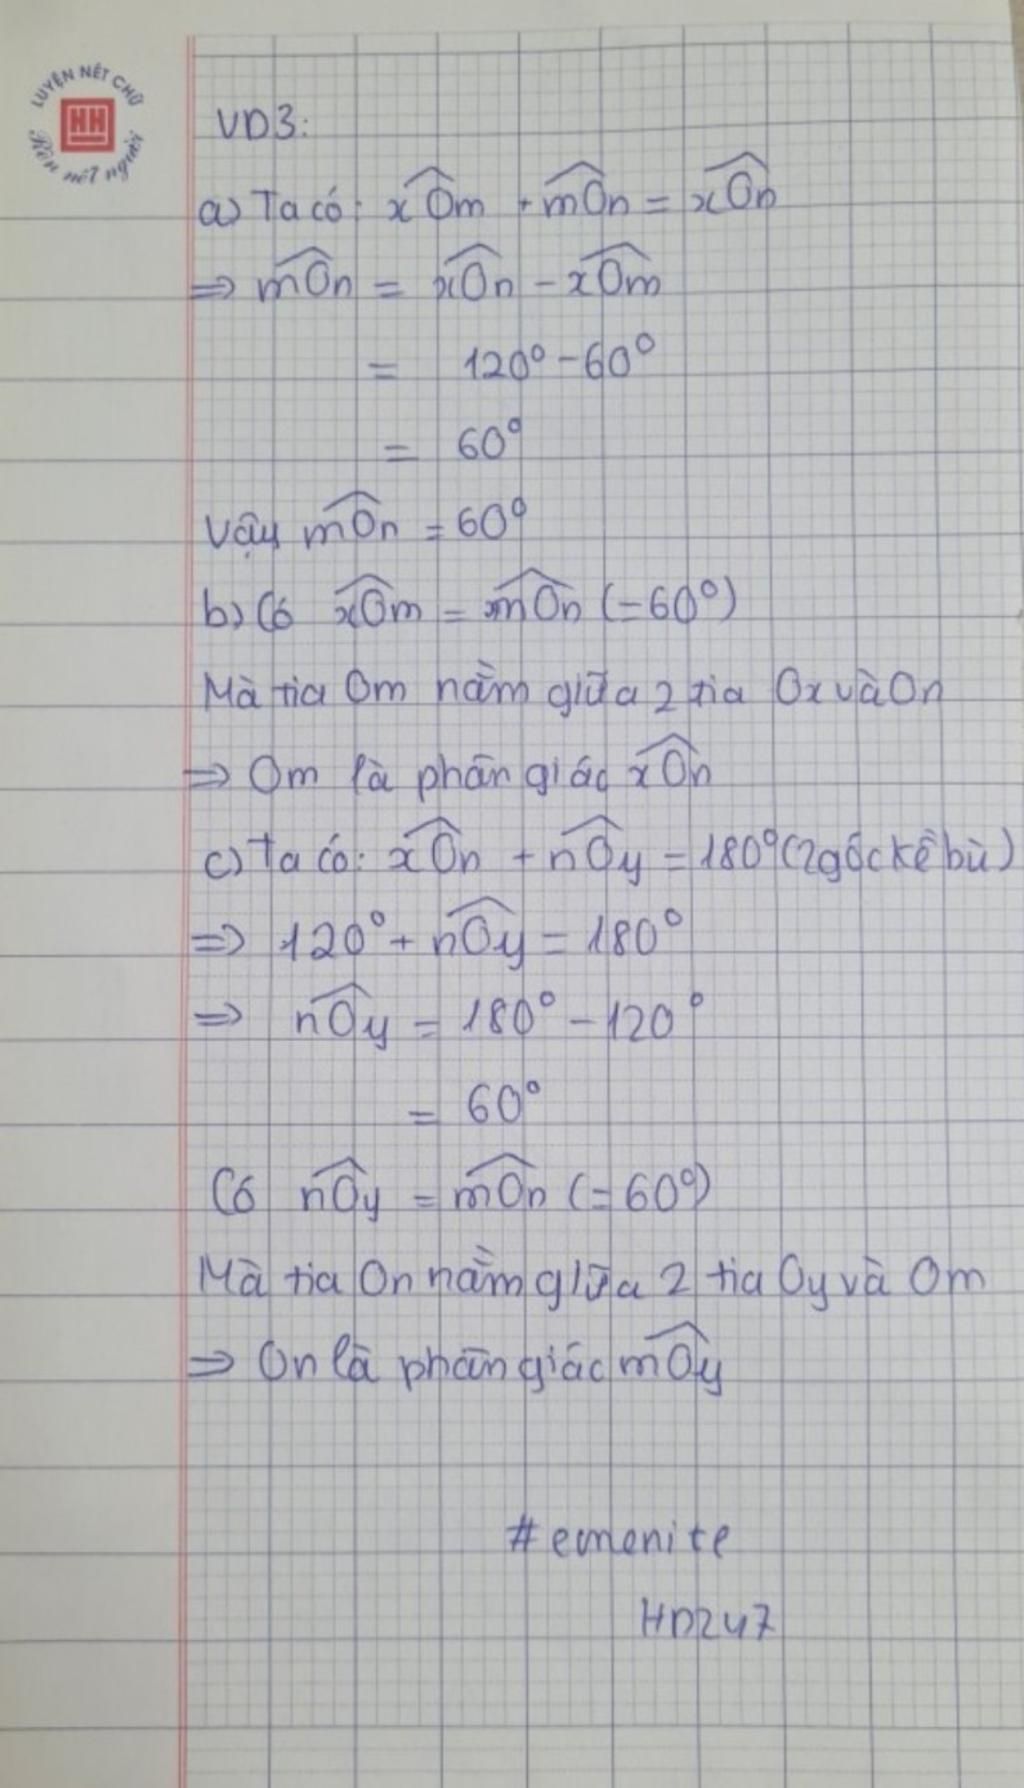 LUYỆN NÉT CHỮ
HH
Rèn nết người
VD3:
a) Ta có: xOm + mOn = xOn
⇒ mOn = xOn - xOm
= 120° - 60°
= 60°
Vậy mOn = 60°
b) Có xOm = mOn (=60°)
Mà tia Om nằm giữa 2 tia Ox và On
⇒ Om là phân giác xOn
c) Ta có: xOn + nOy = 180° (2 góc kề bù)
⇒ 120° + nOy = 180°
⇒ nOy = 180° - 120°
= 60°
Có nOy = mOn (=60°)
Mà tia On nằm giữa 2 tia Oy và Om
⇒ On là phân giác mOy
#emenite
HD247